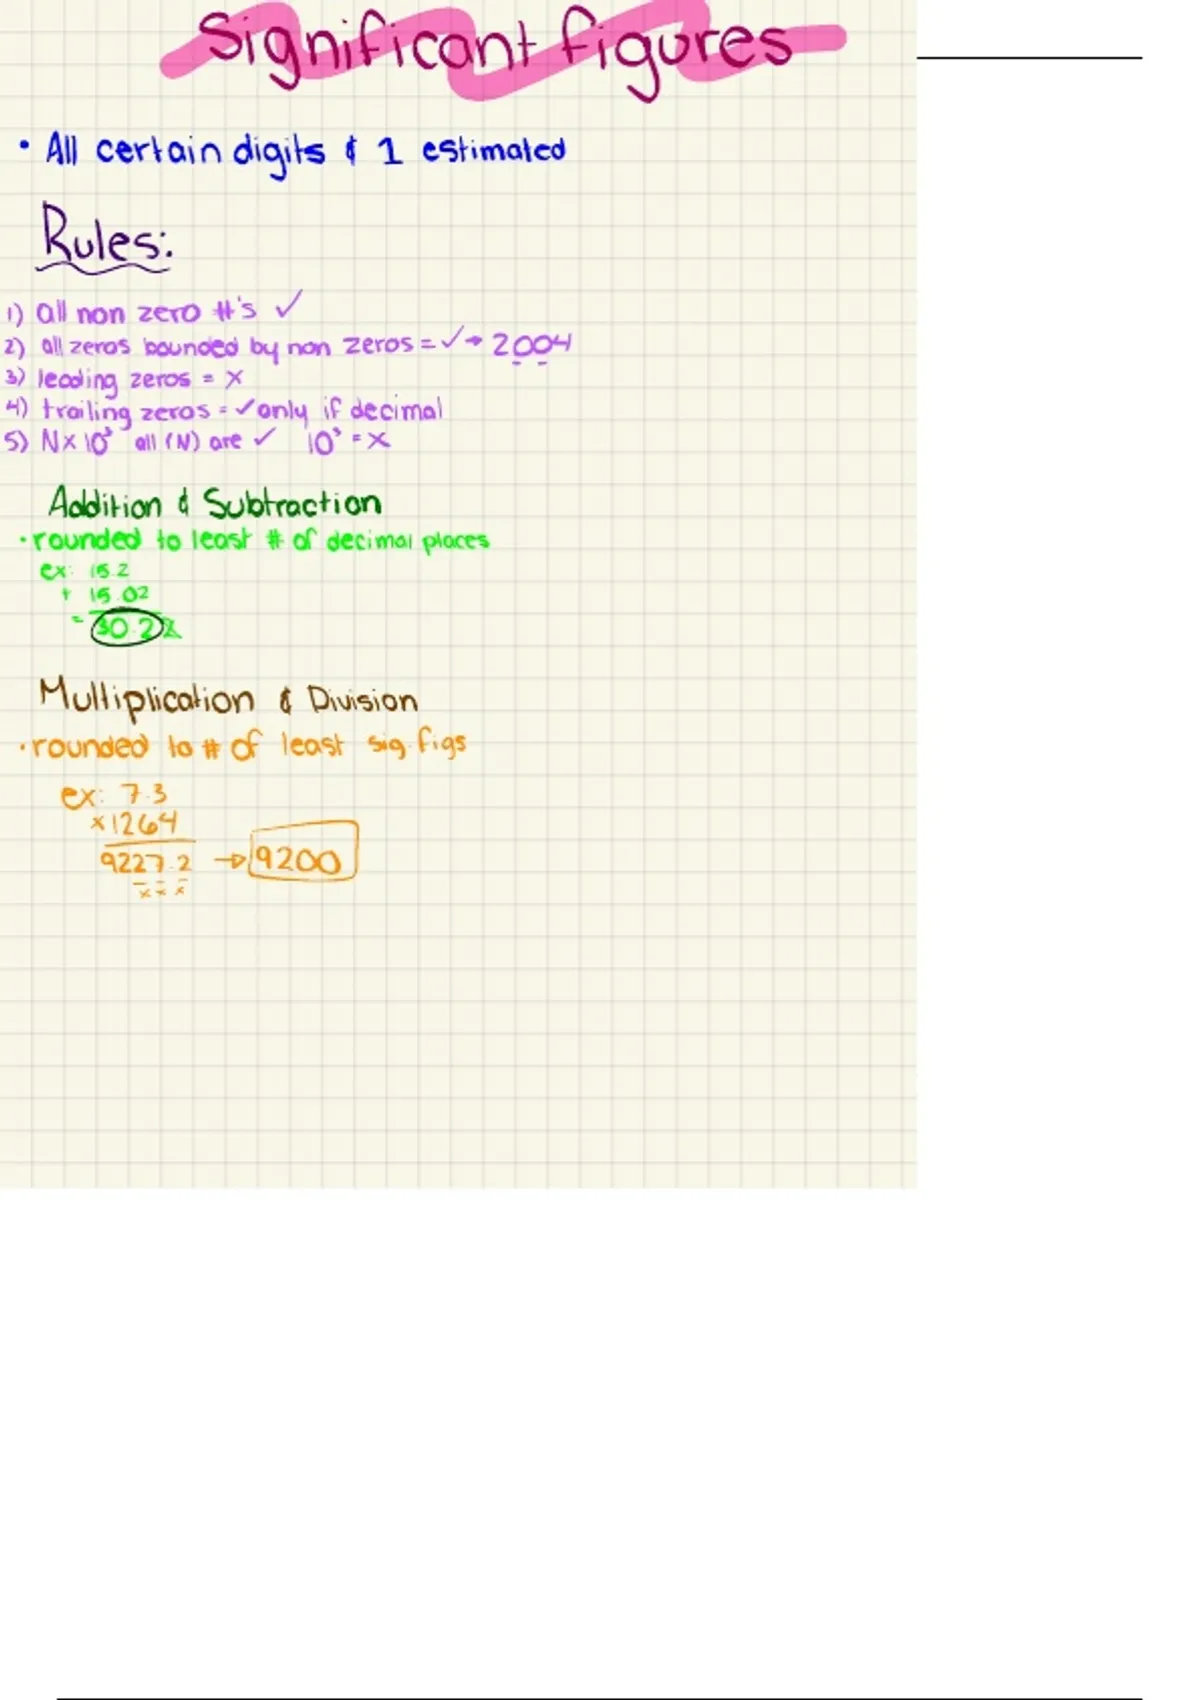 Significant figures
• All certain digits & 1 estimated
Rules:
1) all non zero #'s ✓
2) all zeros bounded by non zeros = ✓→ 2004
3) leading zeros = x
4) trailing zeros = ✓ only if decimal
5) N x 10³ all (N) are ✓ 10³ = x
Addition & Subtraction
• rounded to least # of decimal places
ex: 15.2
+ 15.02
= 30.22
Multiplication & Division
• rounded to # of least sig. figs
ex: 7.3
x 1264
9227.2 → 9200
x x x